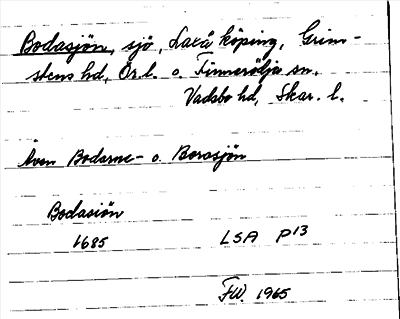 Bodasjön, sjö, Laxå köping, Grim-
stens hd, Ör. l. o. Finnerödja sn,
Vadsbo hd, Skar. l.
Även Bodarne- o. Borasjön
Bodasiön
1685 LSA P13
FW. 1965